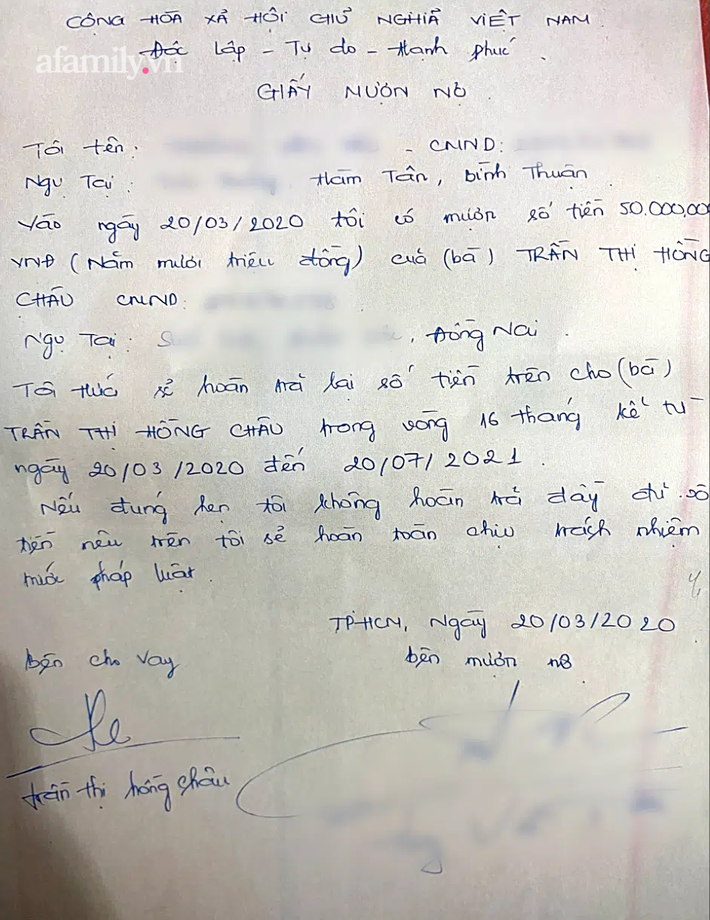 CỘNG HÒA XẢ HỘI CHỦ NGHIẢ VIỆT NAM
Độc lập - Tự do - Hạnh phúc
afamily.vn
GIẤY MƯỢN NỢ
Tôi tên: - CMND:
Ngụ Tại: Hàm Tân, Bình Thuận
Vào ngày 20/03/2020 tôi có mượn số tiền 50.000,00
VNĐ (Năm mươi triệu đồng) của (bà) TRẦN THỊ HỒNG
CHÂU CMND:
Ngụ Tại: S , Đồng Nai.
Tôi hứa sẻ hoàn trả lại số tiền trên cho (bà)
TRẦN THỊ HỒNG CHÂU trong vòng 16 tháng kể từ
ngày 20/03/2020 đến 20/07/2021.
Nếu đúng hẹn tôi không hoàn trả đầy đủ số
tiền nêu trên tôi sẻ hoàn toàn chịu trách nhiệm
trước pháp luật.
TP.HCM, Ngày 20/03/2020
bên cho vay bên mượn nợ
trần thị hồng châu